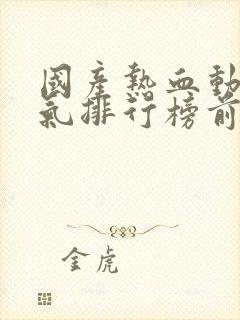 國産熱血動
氣排行榜前
金虎